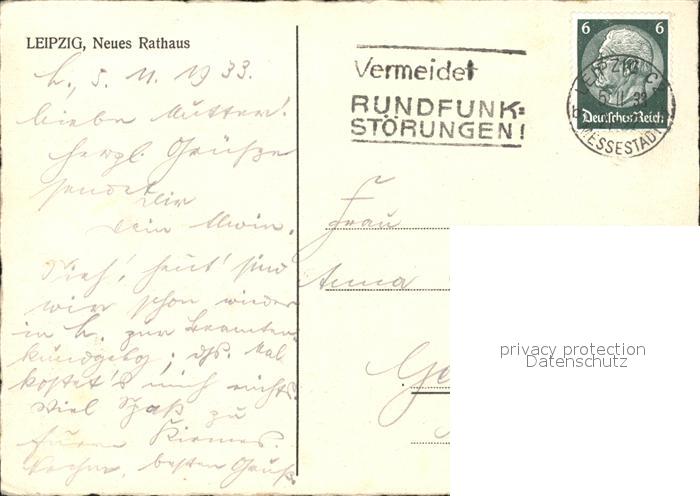 LEIPZIG, Neues Rathaus
L., 5. 11. 1933.
Liebe Mutter!
Herzl. Grüße
sendet Dir
Dein
Sieh! heut' sind
wir schon wieder
in L. zur Beamten-
kundgebg; ds. Mal
kostet's mich nichts.
Viel Spaß zu
Kirmes.
besten Gruß.
Vermeidet
RUNDFUNK-
STÖRUNGEN!
6 6
Deutsches Reich
LEIPZIG C2
MESSESTADT
Frau
Anna
privacy protection
Datenschutz